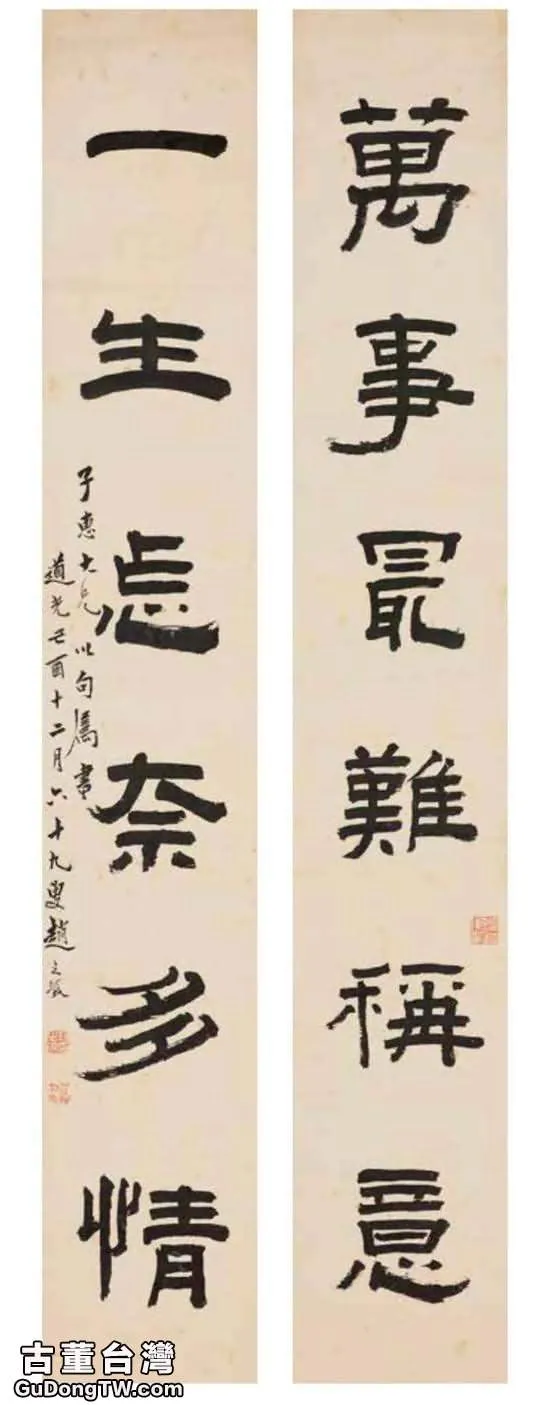 萬事最難稱意
一生怎奈多情
子惠大兄以句屬書
道光己酉十二月六十九叟趙之琛
古董台灣
GuDongTW.com